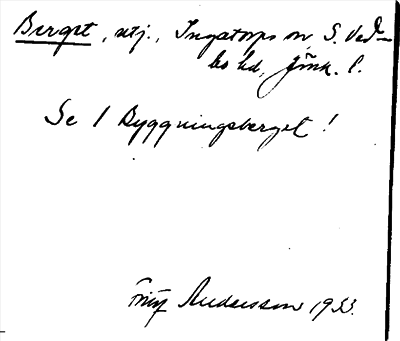 Berget, utj., Ingatorps sn S. Ved-
bo hd, Jönk. l.
Se 1 Byggningsberget!
Fritz Andersson 1933.